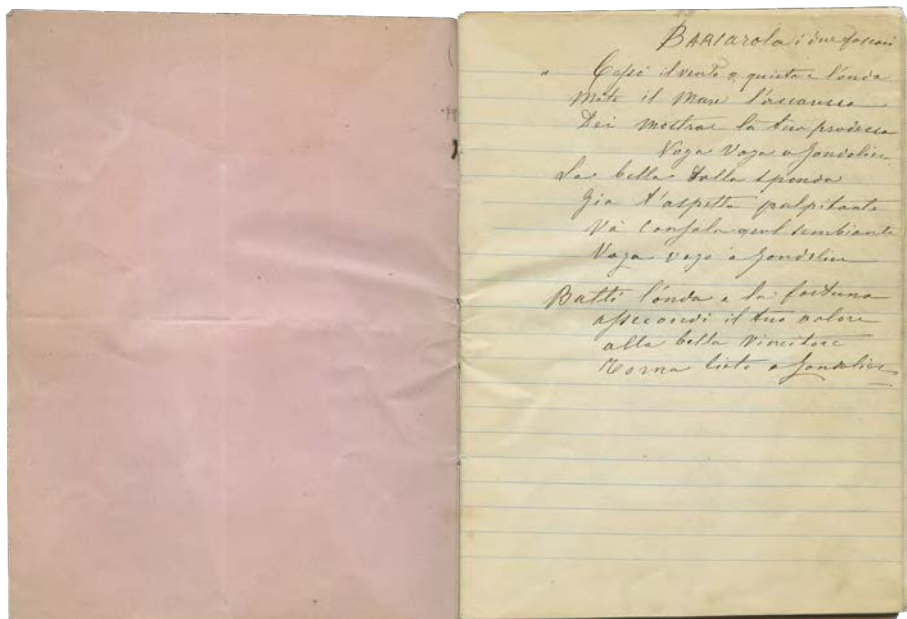 BARCArola i due foscari
" Cessi il vento e quieta è l'onda
Mite il Mare l'accarezza
Dei mostrar la tua prodezza
Voga Voga o Gondolier
La bella dalla sponda
Gia t'aspetta palpitante
Và Consola quel sembiante
Voga voga o Gondolier
Batti l'onda e la fortuna
assecondi il tuo valore
alla bella Vincitore
Torna lieto o Gondolier